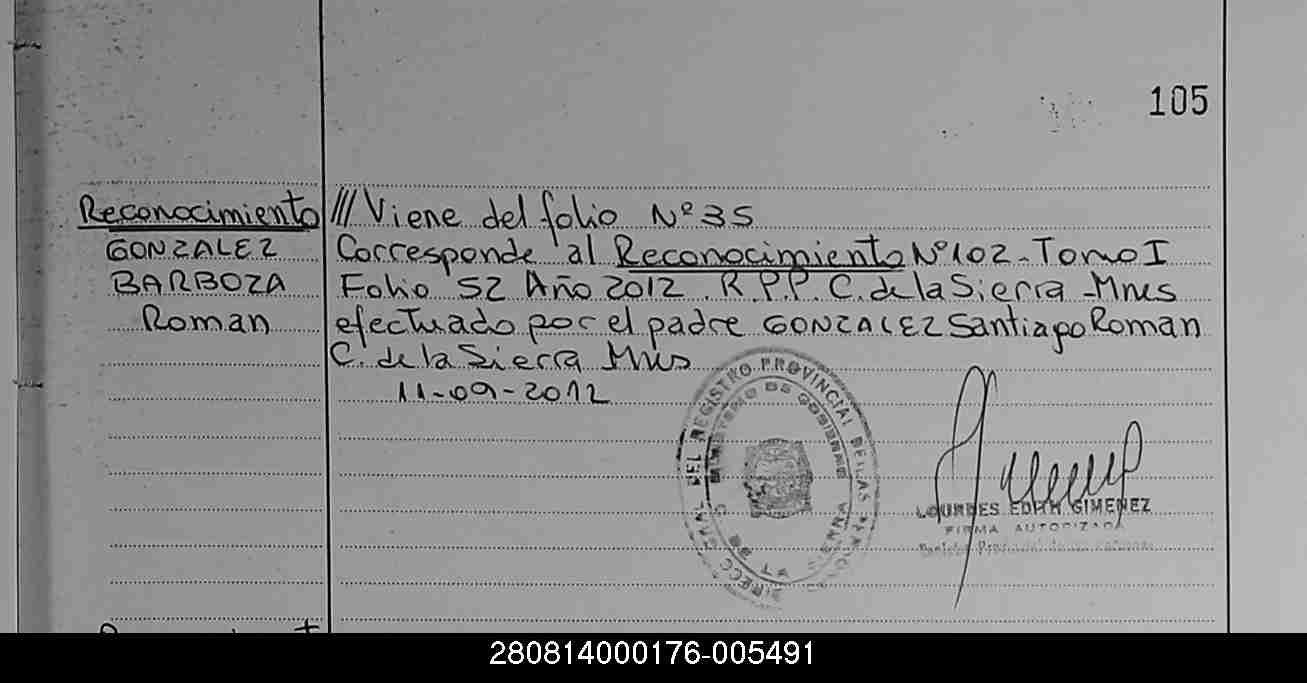 105
Reconocimiento
GONZALEZ
BARBOZA
Roman
/// Viene del folio Nº 35
Corresponde al Reconocimiento Nº 102 - Tomo I
Folio 52 Año 2012. R.P.P. C. de la Sierra - Mnes
efectuado por el padre GONZALEZ Santiago Roman
C. de la Sierra Mnes
11-09-2012
REGISTRO PROVINCIAL DE LAS
MINISTERIO DE GOBIERNO
LA SIERRA
LOURDES EDITH GIMENEZ
FIRMA AUTORIZADA
Registro Provincial de las Personas
280814000176-005491